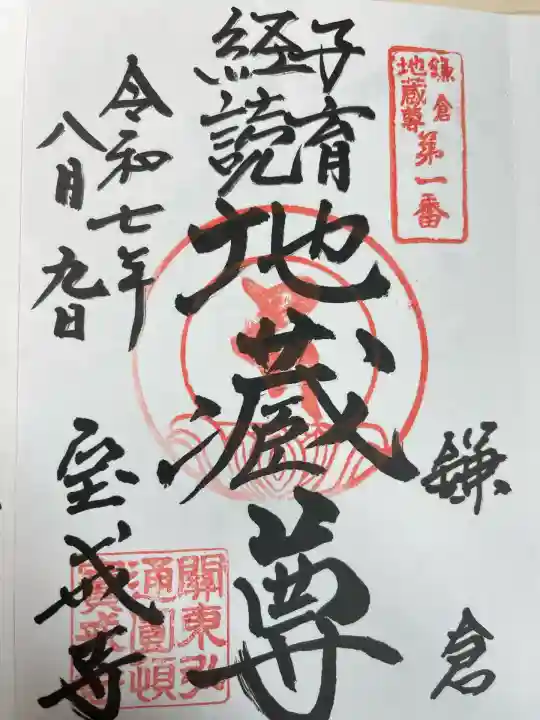 鎌倉
地蔵尊
第一番
鎌倉
子育
経読
地蔵尊
令和七年
八月九日
宝戒寺
關東弘
通圓頓
寳戒寺